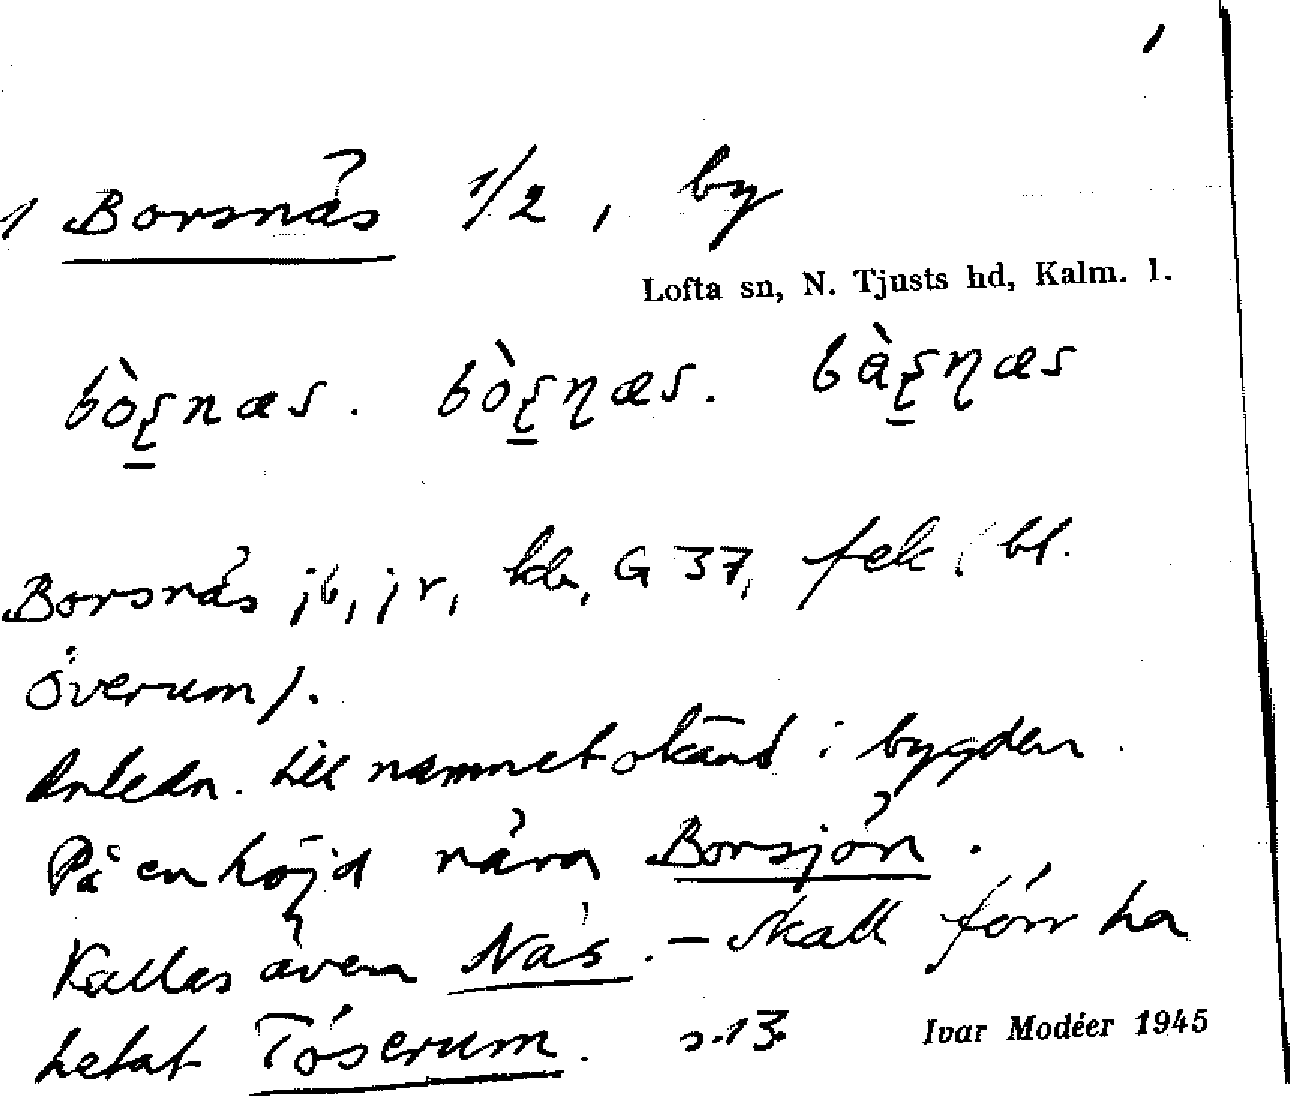 1 Borsnäs 1/2, by
Lofta sn, N. Tjusts hd, Kalm. l.
Borsnäs jb, jr, kb, G 37, fek. bl.
Överum).
Anledn. till namnet okänd i bygden.
På en höjd nära Borsjön.
Kallas även Näs. – Skall förr ha
hetat Töserum. s.13.
Ivar Modéer 1945